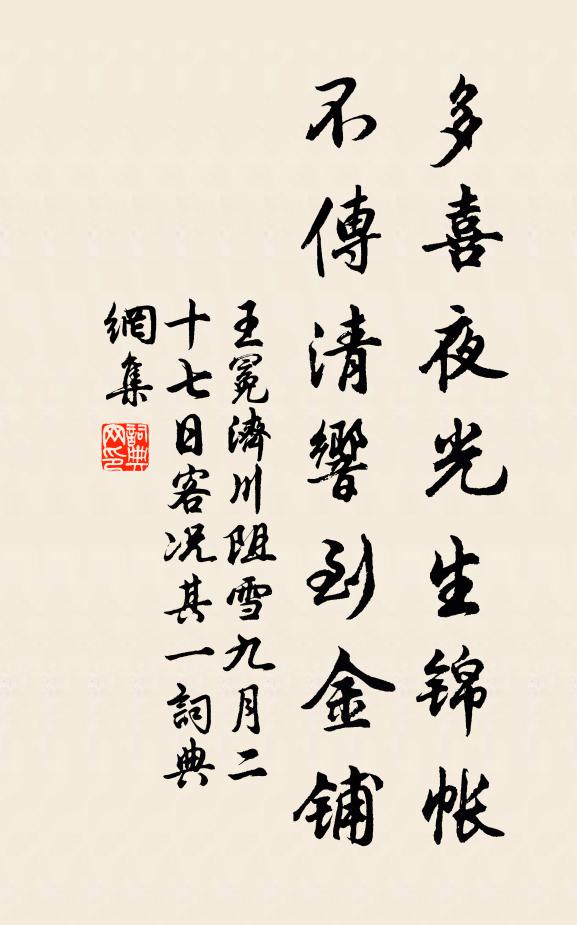 多喜夜光生锦帐
不傳清響到金铺
王冕濟川阻雪九月二
十七日客况其一詞典
網集
詞典
网印